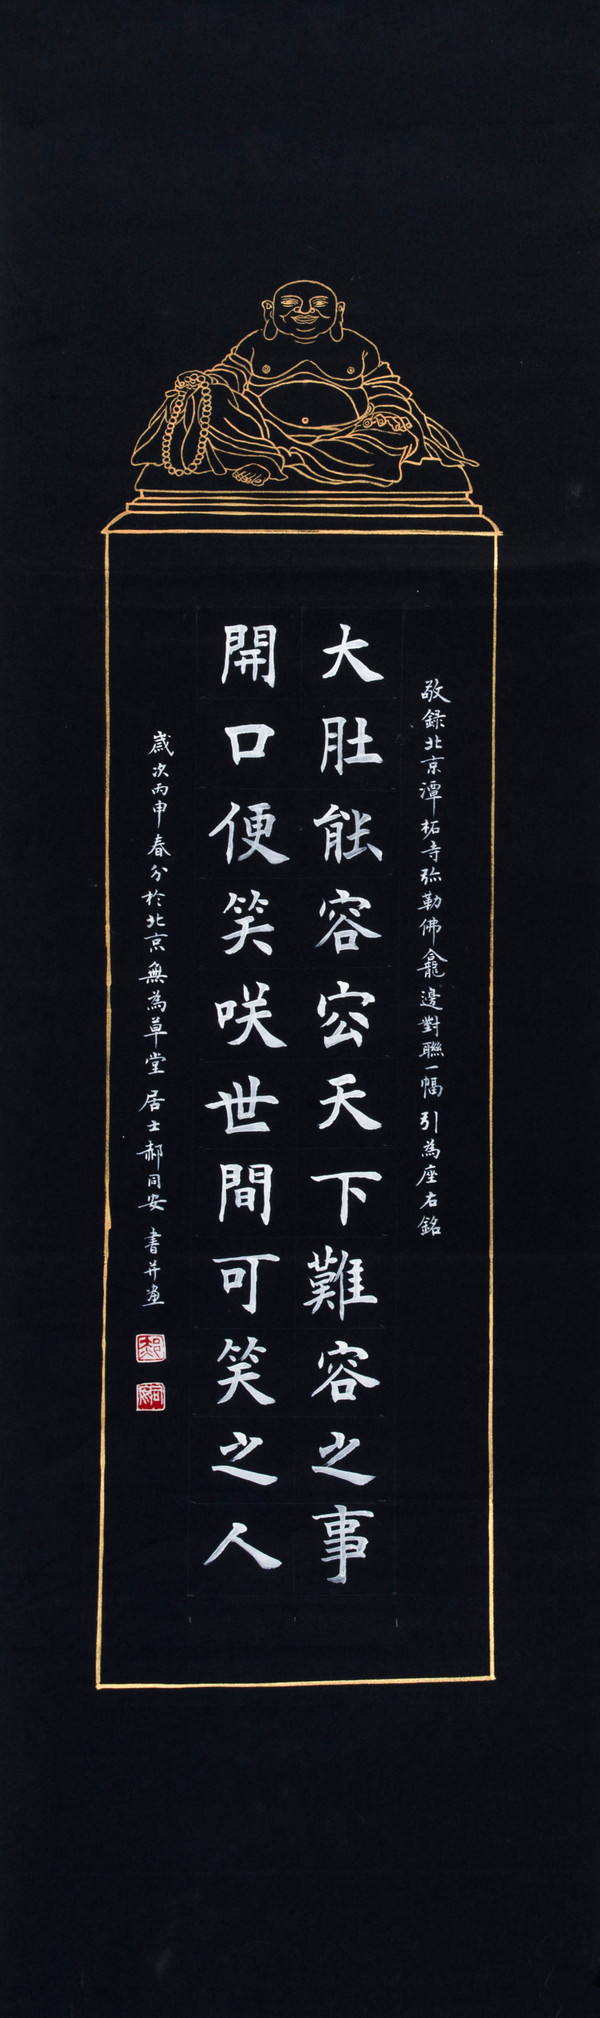 敬録北京潭柘寺弥勒佛龕邊對聯一幅 引為座右銘
大肚能容㝐天下難容之事
開口便笑咲世間可笑之人
歲次丙申春分於北京無為草堂 居士郝同安 書并畫
郝
同安